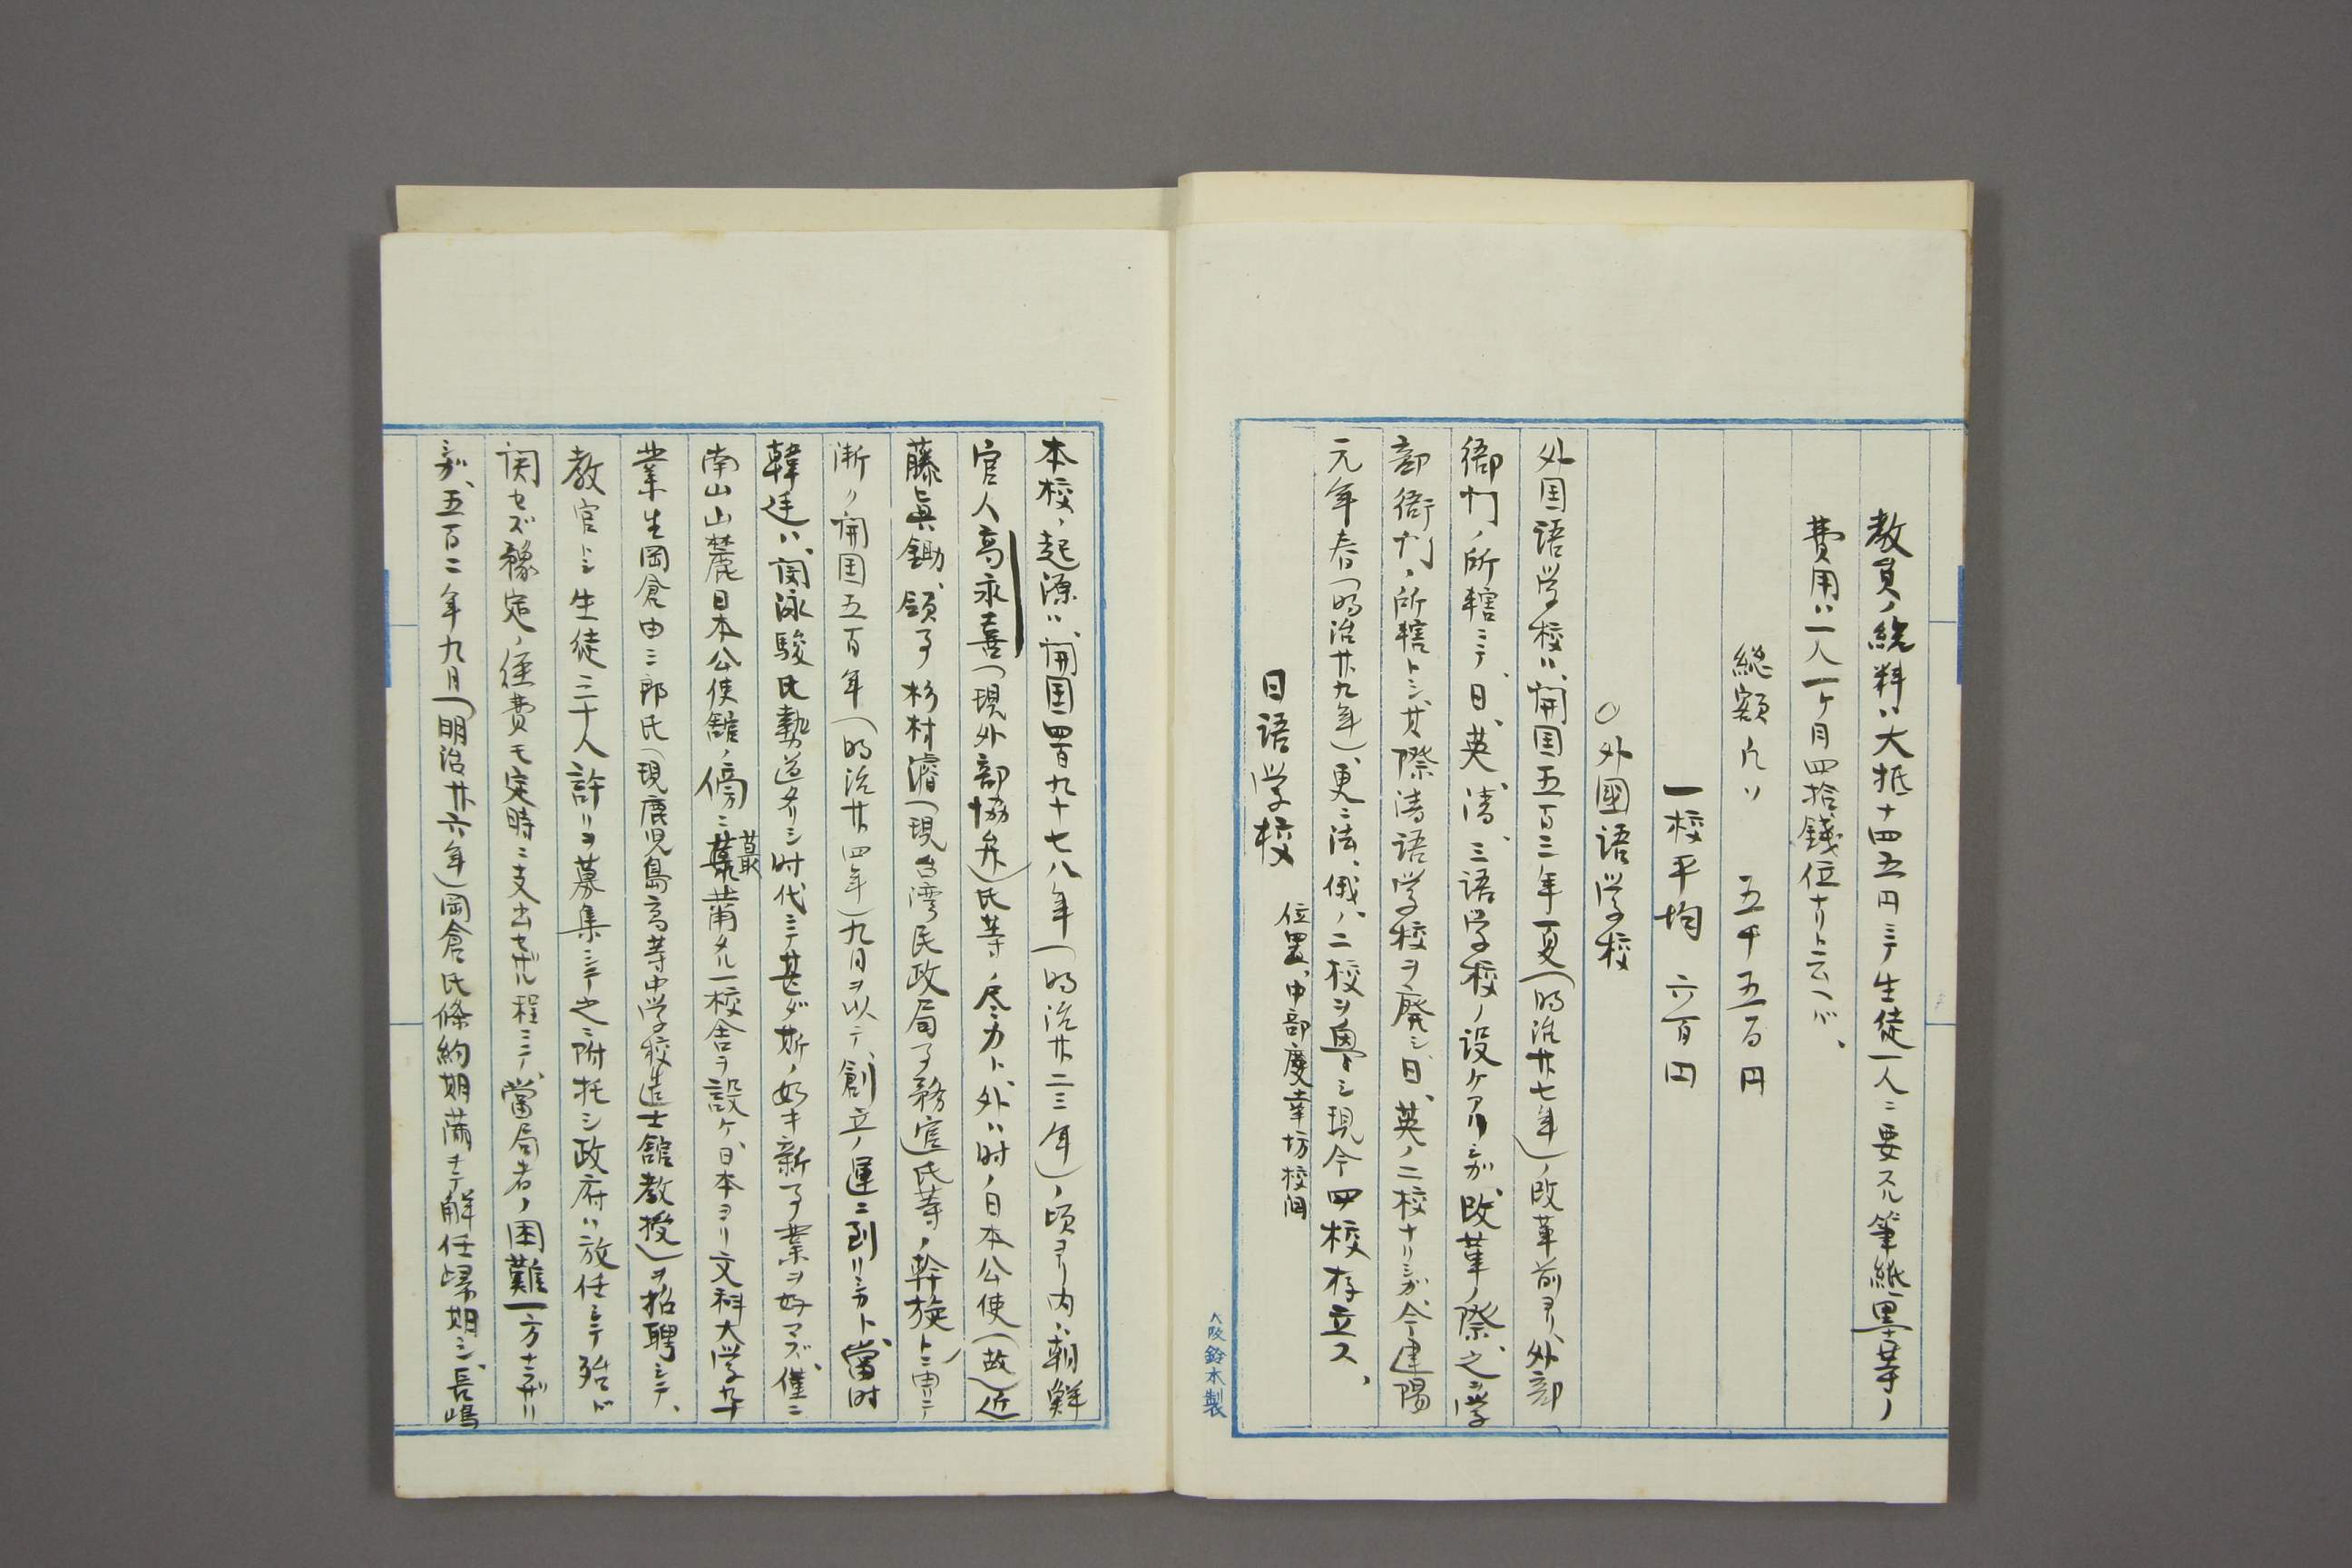 教員ノ給料ハ大抵十四五円ニテ生徒一人ニ要スル筆紙墨等ノ
費用ハ一人一ケ月四拾錢位ナリト云ヘバ、
総額凡ソ 五千五百円
一校平均 六百円
○外國语学校
外国语学校ハ、開国五百三年夏(明治廿七年)ノ改革前ヨリ、外部
衙門ノ所轄ニテ、日、英、清、三语学校ノ設ケアリシガ、改革ノ際、之ヲ学
部衙門ノ所轄トシ、其際清语学校ヲ廃シ、日、英ノ二校ナリシガ、今建陽
元年春(明治廿九年)、更ニ法、俄ノ二校ヲ興シ現今四校存立ス、
日语学校
位置、中部慶幸坊校洞
大阪鈴木製
本校ノ起源ハ、開国四百九十七八年(明治廿二三年)ノ頃ヨリ、内ハ朝鮮
官人高永喜(現外部協弁)氏等ノ尽力ト、外ハ时ノ日本公使(故)近
藤眞鋤、領事杉村濬(現台湾民政局事務官)氏等ノ幹旋トニ由リテ
漸ク開国五百年(明治廿四年)九月ヲ以テ、創立ノ運ニ到リシカト、當时
韓廷ハ、閔泳駿氏勢道タリシ时代ニテ甚ダ斯ノ如キ新事業ヲ好マズ、僅ニ
南山山麓日本公使舘ノ傍ニ蕞蕞蕭タル一校舎ヲ設ケ、日本ヨリ文科大学卆
業生岡倉由三郎氏(現鹿児島高等中学校造士舘教授)ヲ招聘シテ、
教官トシ生徒三十人許リヲ募集シテ之ニ附托シ政府ハ放任シテ殆ド
関セズ豫定ノ経費モ定時ニ支出セザル程ニテ、當局者ノ困難一方ナラザリ
シガ、五百二年九月(明治廿六年)岡倉氏條約期満チテ解任帰朝シ、長嶋